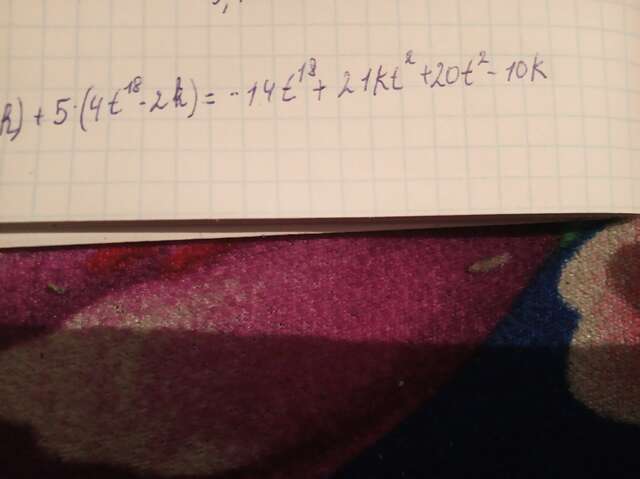 k) + 5·(4t¹⁸-2k) = -14t¹⁸ + 21kt² + 20t² - 10k